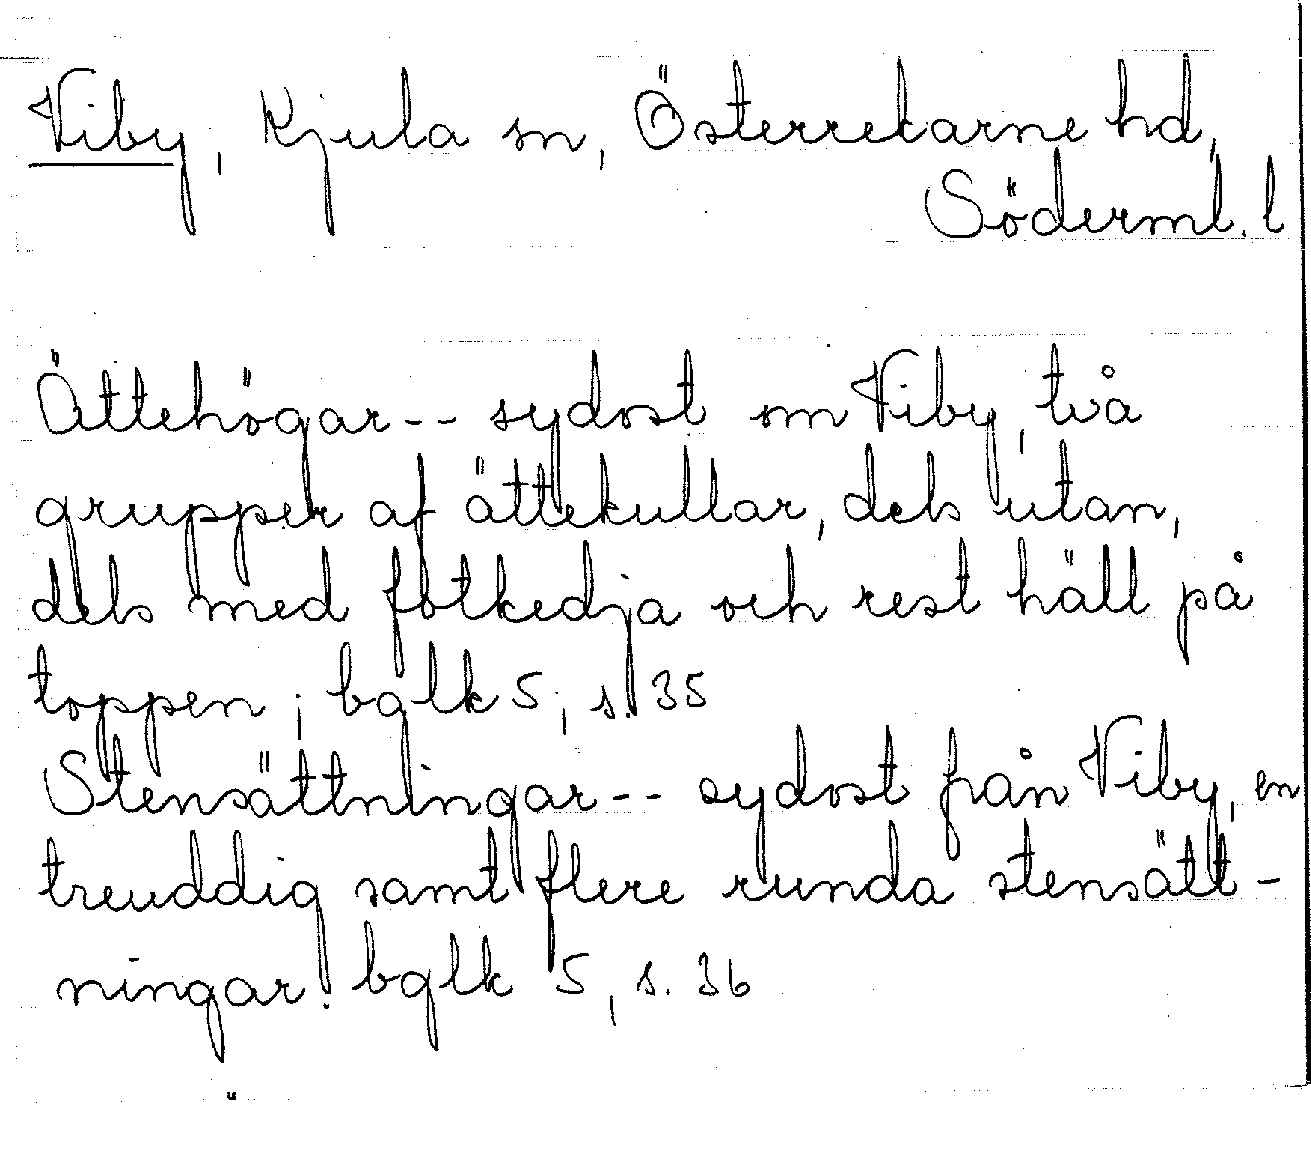 Viby, Kjula sn, Österrekarne hd,
Söderml. l
Ättehögar -- sydost om Viby, två
grupper af ättekullar, dels utan,
dels med fotkedja och rest häll på
toppen; bglk 5, s. 35
Stensättningar -- sydost från Viby, en
treuddig samt flere runda stensätt-
ningar. bglk 5, s. 36